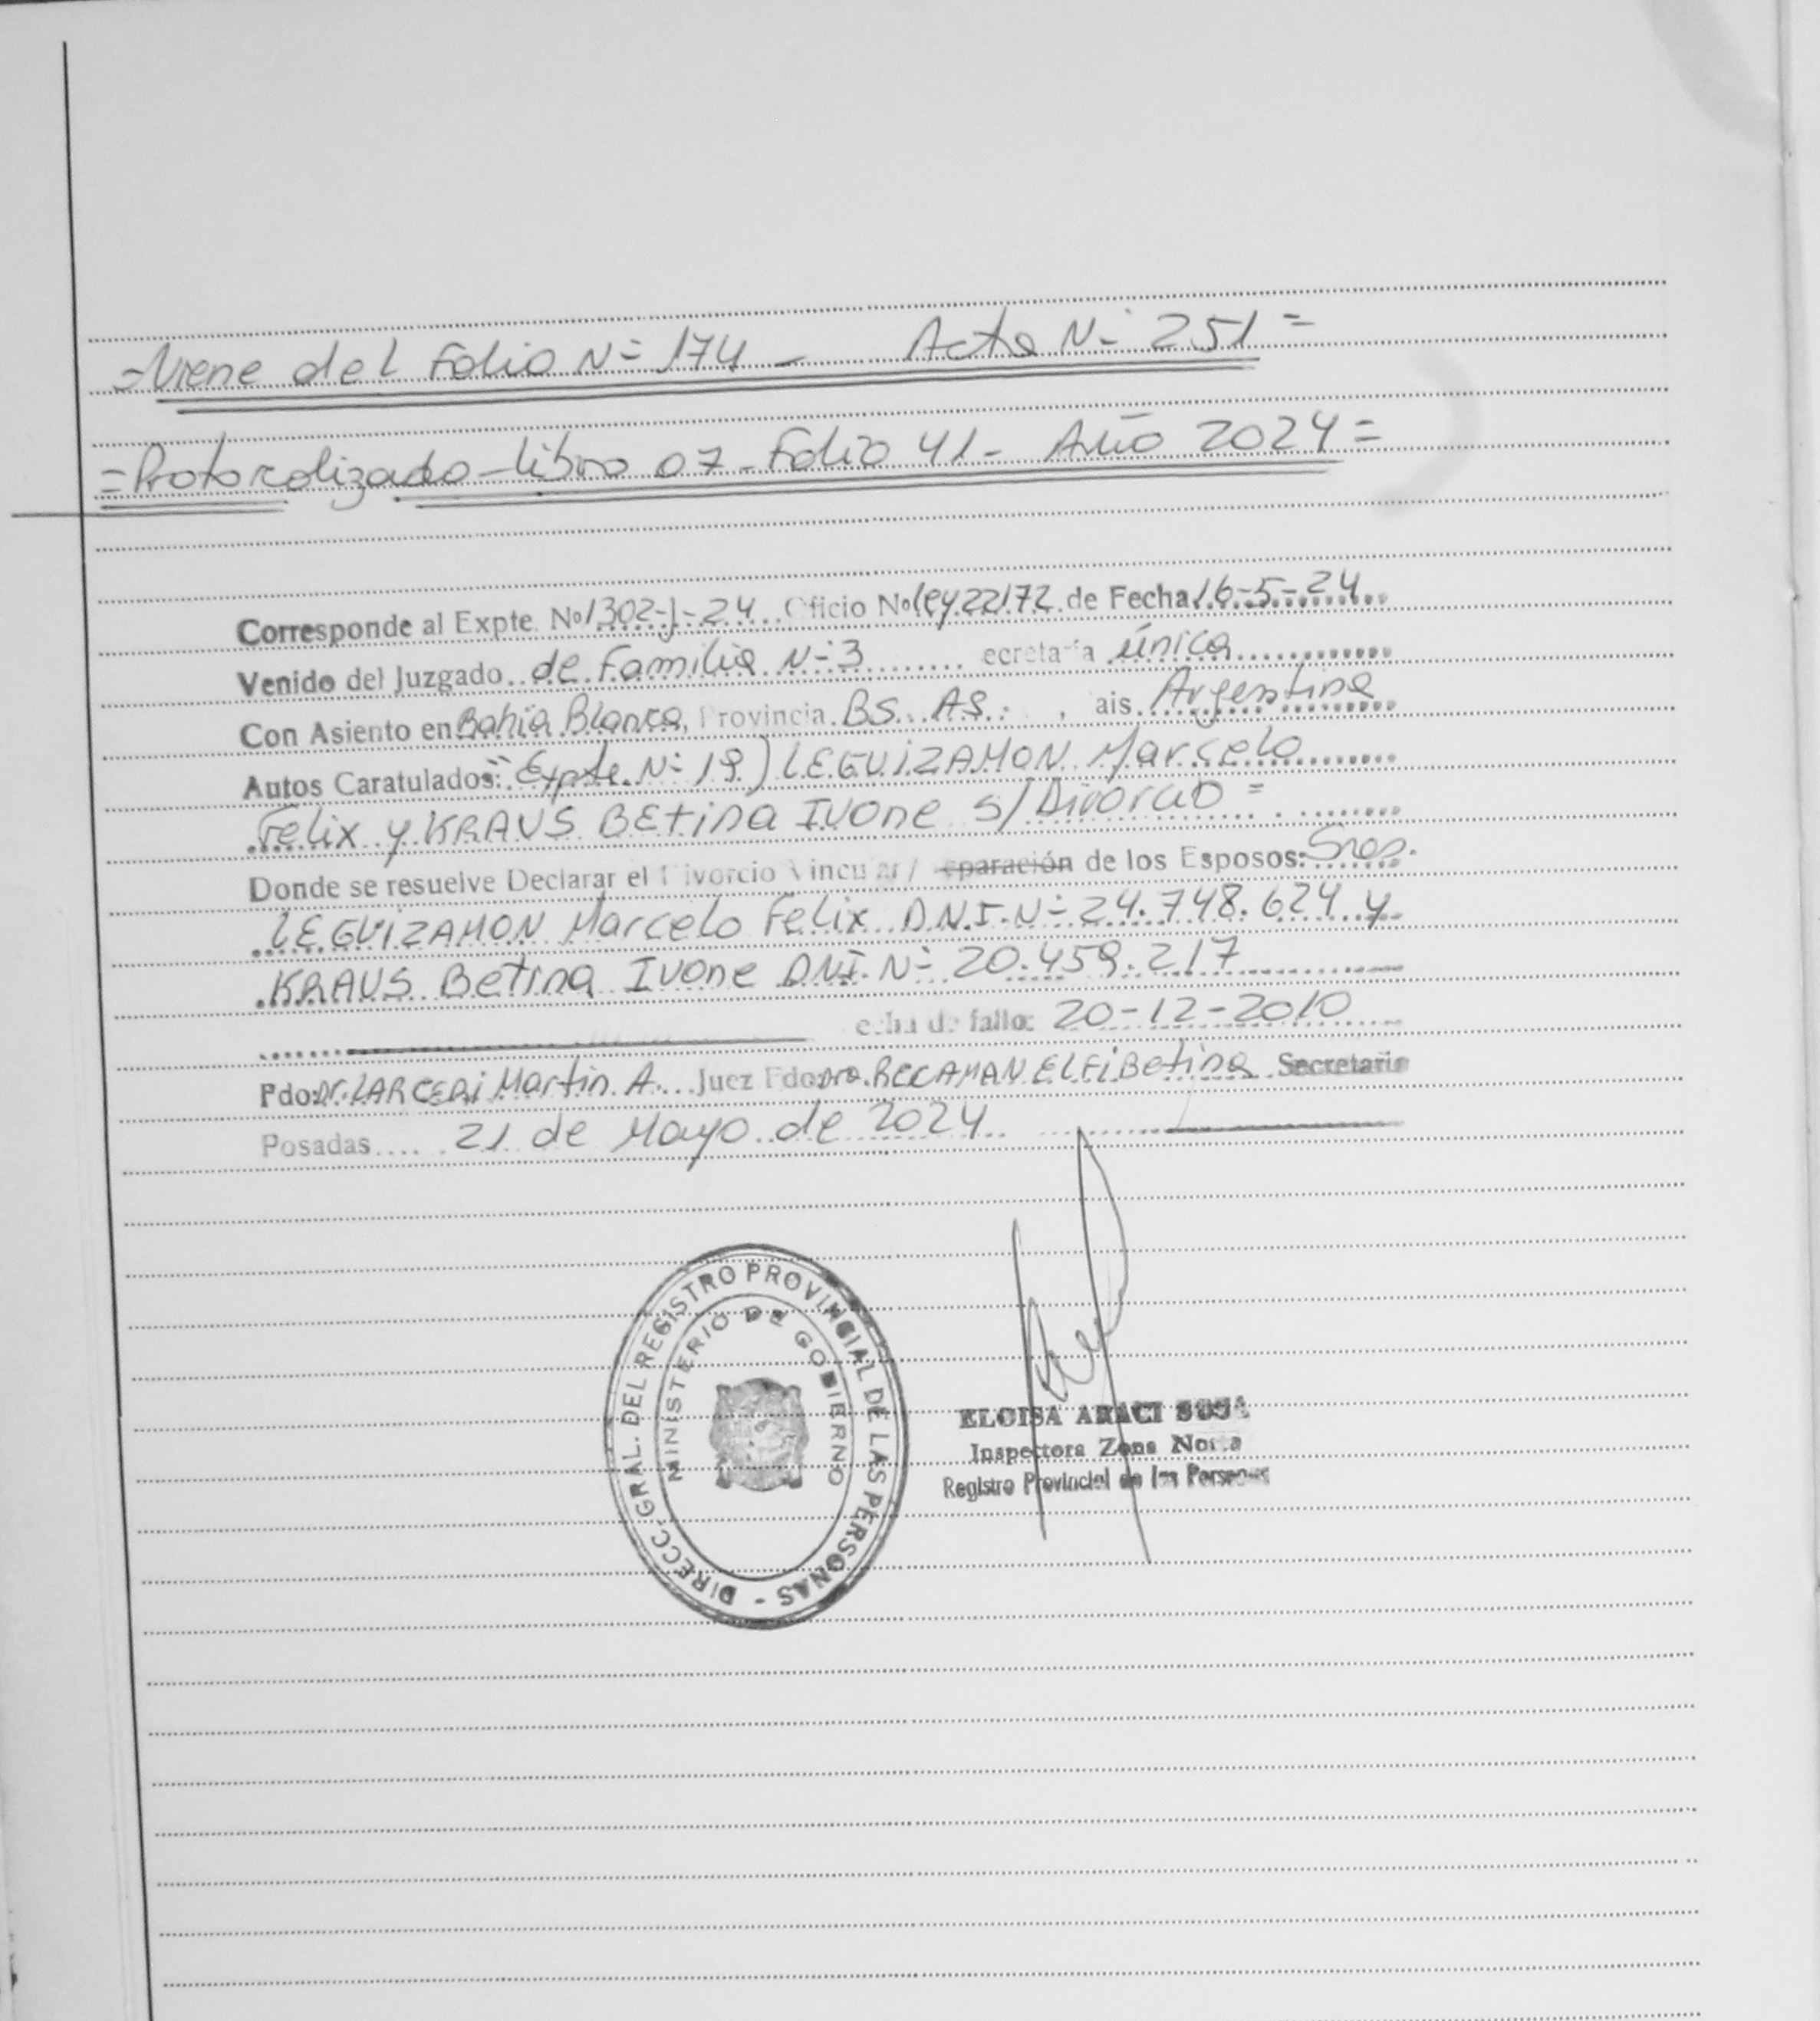 =Viene del Folio N= 174 - Acta N= 251=
=Protocolizado-Libro 07-Folio 41- Año 2024=
Corresponde al Expte. Nº 1302-J-24 Oficio Nº ley 22172 de Fecha 16-5-24
Venido del Juzgado de Familia N=3 ecretaria única
Con Asiento en Bahia Blanca, Provincia BS. AS. , ais Argentina
Autos Caratulados: "Expte. N= 19) LEGUIZAMON Marcelo
Felix y KRAUS BEtina IVONE S/Divorcio =
Donde se resuelve Declarar el Divorcio Vincular / eparación de los Esposos: Sres.
LEGUIZAMON Marcelo Felix D.N.I. N= 24.748.624 y
KRAUS Betina Ivone DNI. N= 20.459.217
echa de fallo: 20-12-2010
Fdo: Dr. Martin A. Juez Fdo: Dra. RECAMAN ELFi Betina Secretaria
Posadas 21 de Mayo de 2024
DIRECC. GRAL. DEL REGISTRO PROVINCIAL DE LAS PERSONAS -
MINISTERIO DE GOBIERNO
ELOISA ARACI SOSA
Inspectora Zona Norte
Registro Provincial de las Personas